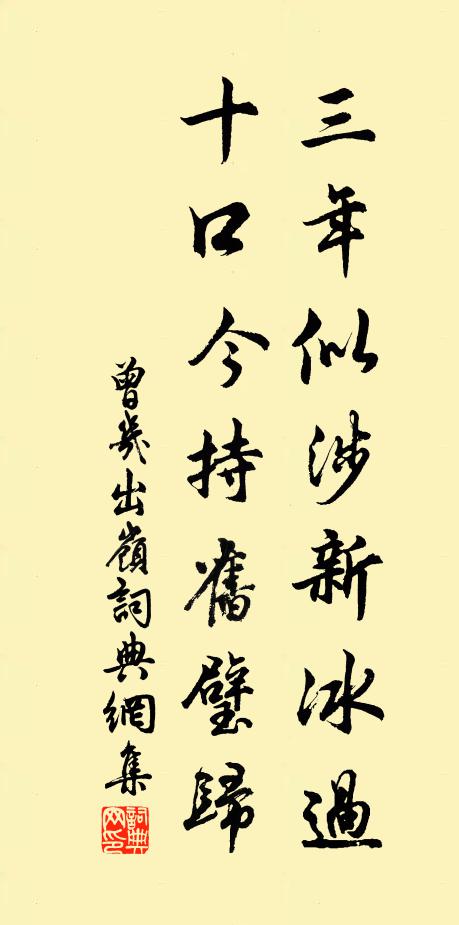 三年似涉新冰過
十口今持舊璧歸
曾幾出嶺詞典網集
詞典网印